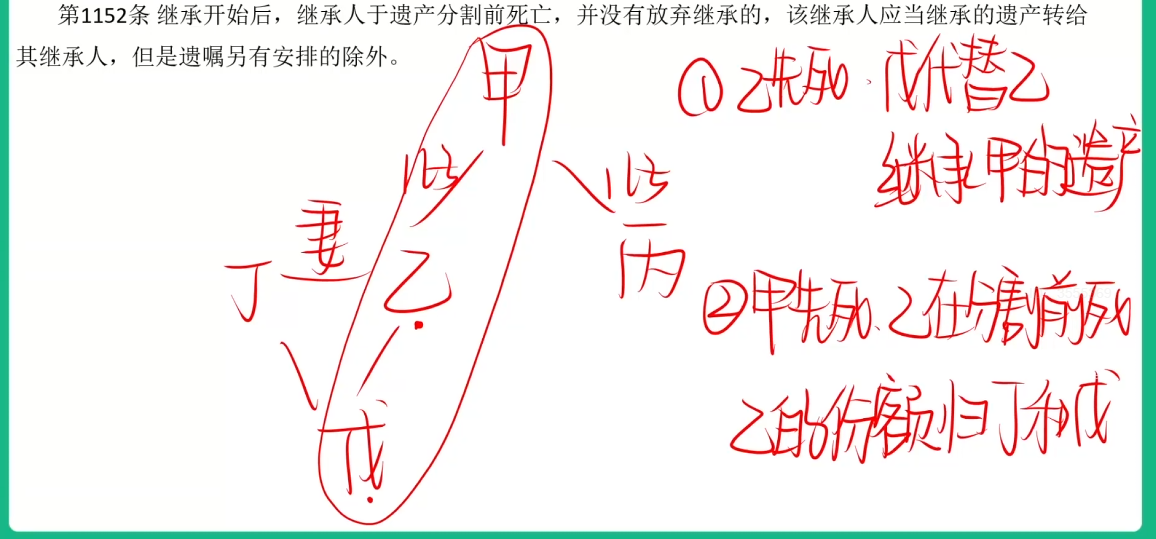 第1152条 继承开始后，继承人于遗产分割前死亡，并没有放弃继承的，该继承人应当继承的遗产转给
其继承人，但是遗嘱另有安排的除外。
甲
①乙先死．戊代替乙
继承甲的遗产
妻
丁
乙
丙
②甲先死、乙在分割前死
乙的份额归丁和戊
戊